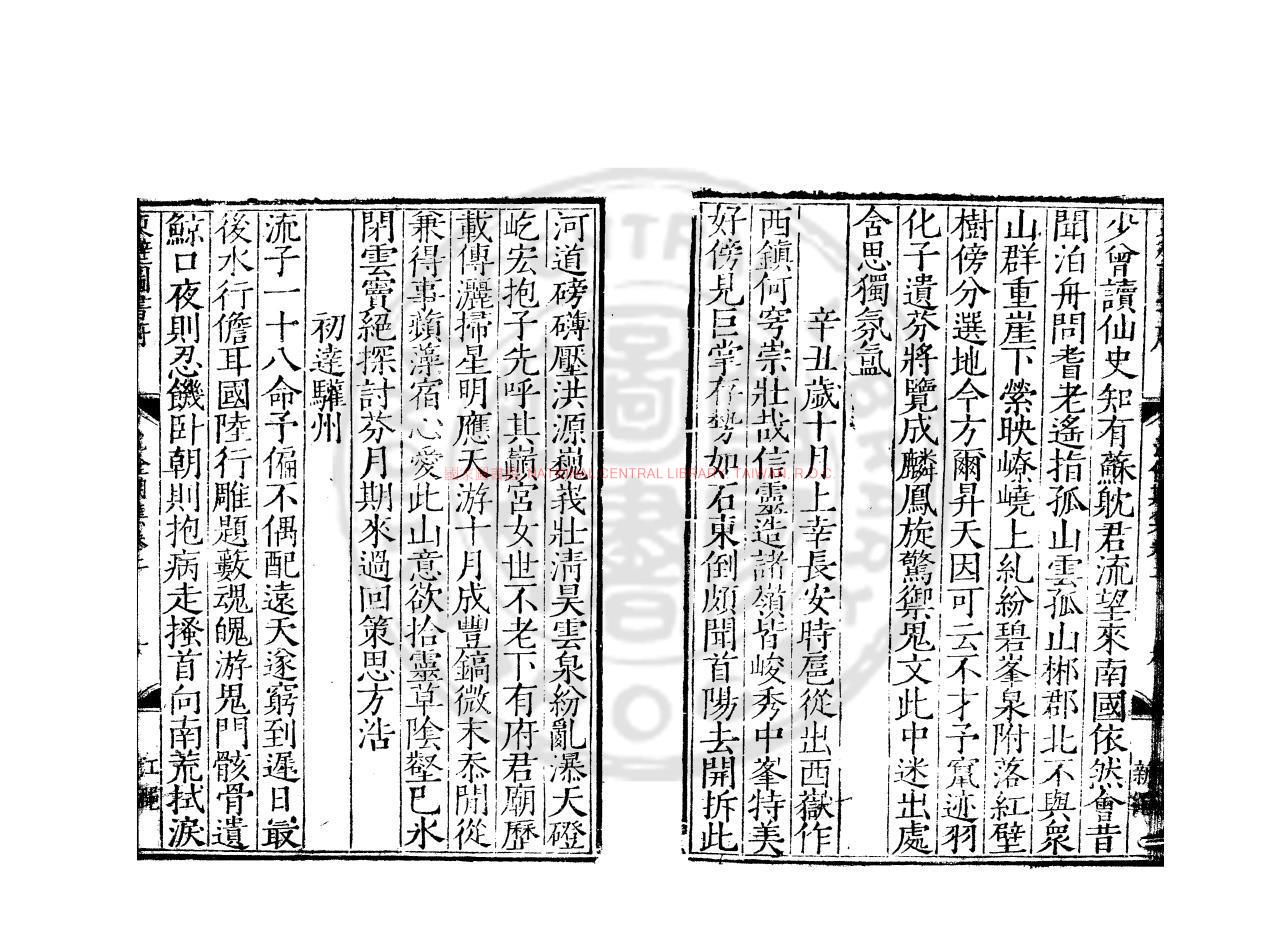 少曾讀仙史知有蘇躭君流望來南國依然會昔
聞泊舟問耆老遙指孤山雲孤山郴郡北不與衆
山群重崖下縈映嶛嶢上乣紛碧峯泉附落紅壁
樹傍分選地今方爾昇天因可云不才予竄迹羽
化子遺芬將覽成麟鳳旋驚御鬼文此中迷出處
舍思獨氛氳
辛丑歲十月上幸長安時扈從出西嶽作
西鎮何穹崇壯哉信靈造諸嶺皆峻秀中峯特美
好傍見巨掌存勢如石東倒頗聞首陽去開拆此
河道磅礴壓洪源巍峩壯清昊雲泉紛亂瀑天磴
屹宏抱子先呼其巔宮女世不老下有府君廟歷
載傳灑掃星明應天游十月成豐鎬微末忝閒從
兼得事蘋藻宿心愛此山意欲拾靈草陰壑已氷
閉雲竇絕探討芬月期來過回策思方浩
初達驩州
流子一十八命予偏不偶配遠天遂窮到遲日最
後水行儋耳國陸行雕題藪魂魄游鬼門骸骨遺
鯨口夜則忍饑卧朝則抱病走搔首向南荒拭淚
國家圖書館 NATIONAL CENTRAL LIBRARY, TAIWAN, R.O.C